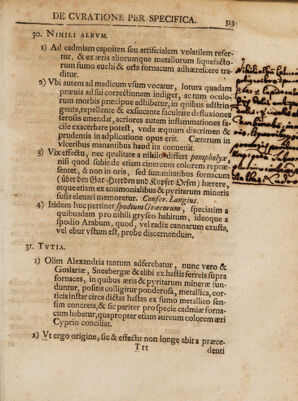 DE CVRATIONE PER SPECIFICA. 513
30. NIHILI ALBVM.
1) Ad cadmiam capoiten seu artificialem volatilem refer-
tur, & ex æris aliorumque metallorum liquefacto-
rum fumo euchi & oris fornacum adhærescere tra-
ditur.
2) Vbi autem ad medicum vsum vocatur, lotura quadam
præuia ad sui correctionem indiget, ac num oculo-
rum morbis præcipue adhibetur, in quibus adstrin-
gente, repellente & exsiccante facultate defluxiones
serosas emendat, acriores autem inflammationes fa-
cile exacerbare potest, vnde æquum discrimen &
prudentia in adplicatione opus erit. Cæterum in
vlceribus manantibus haud ita conuenit.
3) Vix effectu, nec qualitate a nihilo differt pompholyx,
nisi quod subinde etiam cinereum colorem repræ-
sentet, & non in oris, sed summitatibus fornacum
(über den Gar-Heerden und Kupffer-Oefen) hærere,
atque etiam ex antimonialibus & pyritarum mineris
fusis eleuari memoretur. Confer. Langius.
4) Itidem huc pertinet spodium Græcorum, speciatim a
quibusdam pro nihili gryseo habitum, ideoque a
spodio Arabum, quod, vel radix cannarum exusta,
vel ebur vstum est, probe discernendum.
31. TVTIA.
1) Olim Alexandria tantum adferebatur, nunc vero &
Goslariæ, Sneebergæ & alibi ex hastis ferreis supra
fornaces, in quibus æris & pyritarum mineræ fun-
duntur, positis colligitur ponderosa, metallica, cor-
ticis instar circa dictas hastas ex fumo metallico sen-
sim concreta, & sic pariter pro specie cadmiæ forna-
cum habetur, quapropter etiam aureum colorem æri
Cyprio conciliat.
2) Vt ergo origine, sic & effectu non longe abit a præce-
Ttt denti